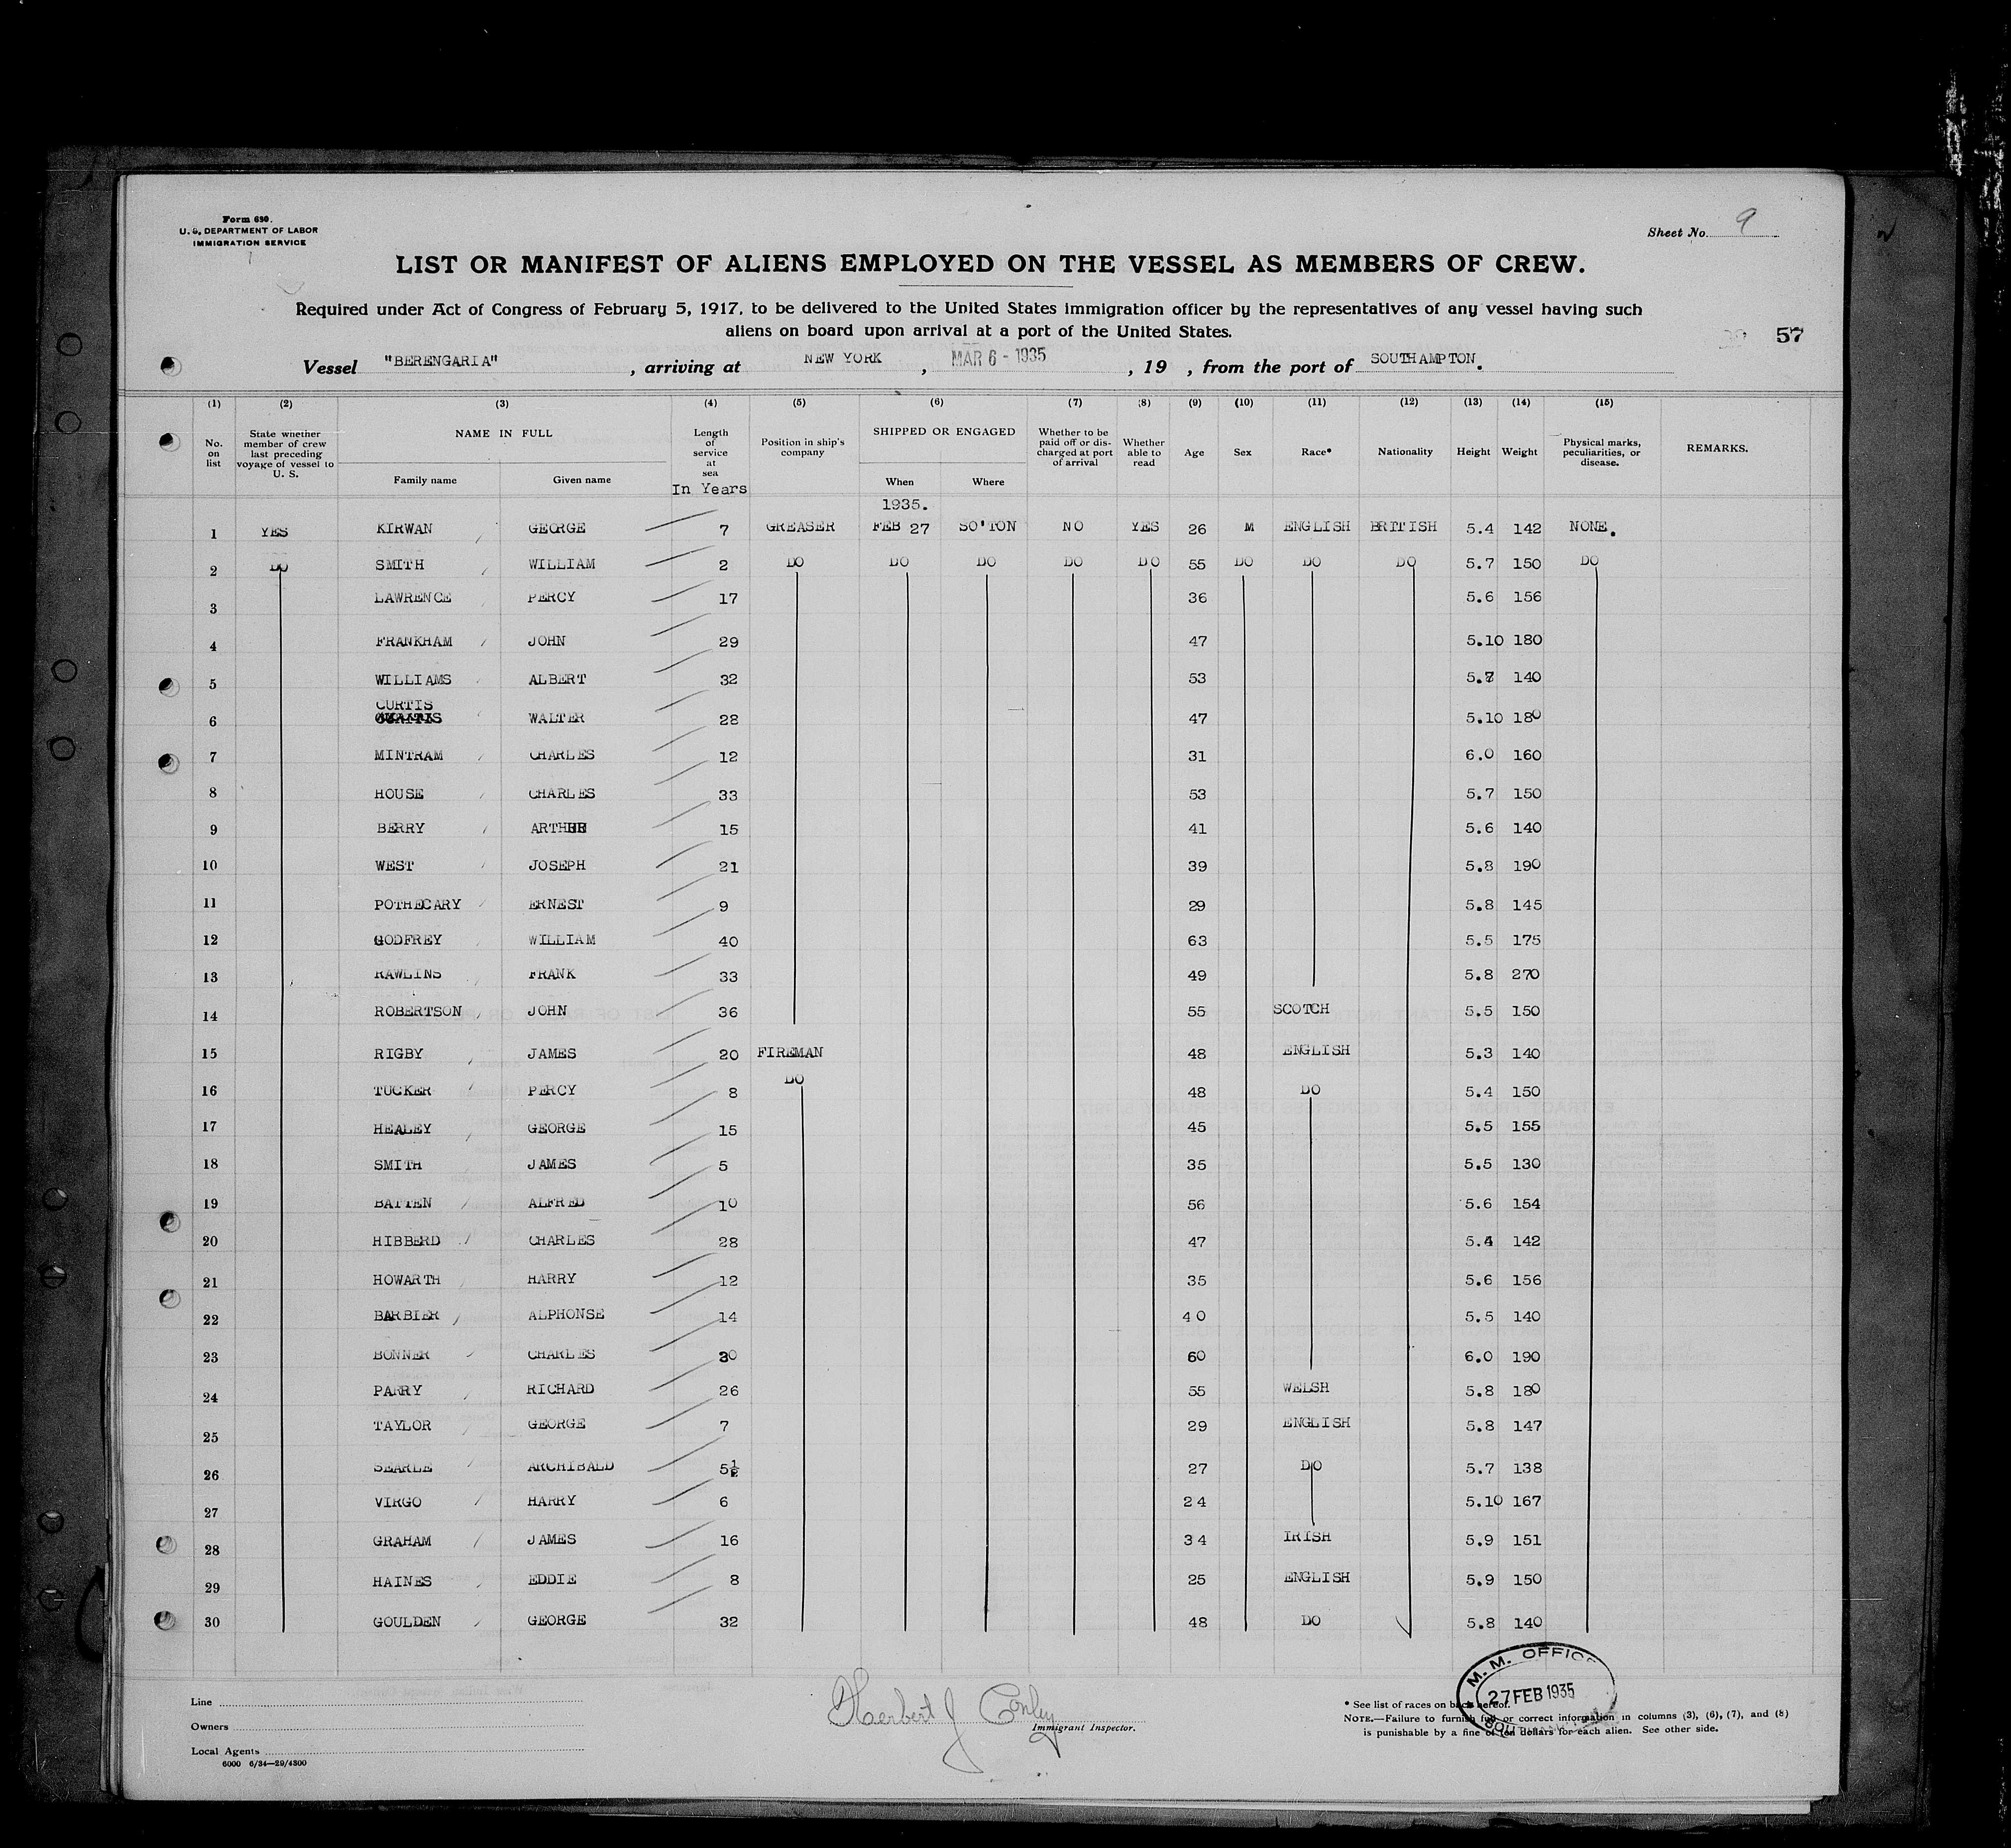 Form 680.
U. S. DEPARTMENT OF LABOR
IMMIGRATION SERVICE
Sheet No. 9
LIST OR MANIFEST OF ALIENS EMPLOYED ON THE VESSEL AS MEMBERS OF CREW.
Required under Act of Congress of February 5, 1917, to be delivered to the United States immigration officer by the representatives of any vessel having such
aliens on board upon arrival at a port of the United States.
57
Vessel "BERENGARIA", arriving at NEW YORK, MAR 6 - 1935, 19 , from the port of SOUTHAMPTON.
(1) (2) (3) (4) (5) (6) (7) (8) (9) (10) (11) (12) (13) (14) (15)
No. on list
State whether member of crew last preceding voyage of vessel to U. S.
NAME IN FULL
Family name
Given name
Length of service at sea
In Years
Position in ship's company
SHIPPED OR ENGAGED
When
Where
Whether to be paid off or discharged at port of arrival
Whether able to read
Age
Sex
Race*
Nationality
Height
Weight
Physical marks, peculiarities, or disease.
REMARKS.
1935.
1 YES KIRWAN GEORGE 7 GREASER FEB 27 SO'TON NO YES 26 M ENGLISH BRITISH 5.4 142 NONE.
2 DO SMITH WILLIAM 2 DO DO DO DO DO 55 DO DO DO 5.7 150 DO
3 LAWRENCE PERCY 17 36 5.6 156
4 FRANKHAM JOHN 29 47 5.10 180
5 WILLIAMS ALBERT 32 53 5.7 140
6 CURTIS WALTER 28 47 5.10 180
7 MINTRAM CHARLES 12 31 6.0 160
8 HOUSE CHARLES 33 53 5.7 150
9 BERRY ARTHUR 15 41 5.6 140
10 WEST JOSEPH 21 39 5.8 190
11 POTHECARY ERNEST 9 29 5.8 145
12 GODFREY WILLIAM 40 63 5.5 175
13 RAWLINS FRANK 33 49 5.8 270
14 ROBERTSON JOHN 36 55 SCOTCH 5.5 150
15 RIGBY JAMES 20 FIREMAN 48 ENGLISH 5.3 140
16 TUCKER PERCY 8 DO 48 DO 5.4 150
17 HEALEY GEORGE 15 45 5.5 155
18 SMITH JAMES 5 35 5.5 130
19 BATTEN ALFRED 10 56 5.6 154
20 HIBBERD CHARLES 28 47 5.4 142
21 HOWARTH HARRY 12 35 5.6 156
22 BARBIER ALPHONSE 14 40 5.5 140
23 BONNER CHARLES 30 60 6.0 190
24 PARRY RICHARD 26 55 WELSH 5.8 180
25 TAYLOR GEORGE 7 29 ENGLISH 5.8 147
26 SEARLE ARCHIBALD 5½ 27 DO 5.7 138
27 VIRGO HARRY 6 24 5.10 167
28 GRAHAM JAMES 16 34 IRISH 5.9 151
29 HAINES EDDIE 8 25 ENGLISH 5.9 150
30 GOULDEN GEORGE 32 48 DO 5.8 140
Line
Owners
Local Agents
6000 6/34—29/4300
Herbert J Conley
Immigrant Inspector.
M. M. OFFICE
27 FEB 1935
* See list of races on back hereof.
NOTE.—Failure to furnish full or correct information in columns (3), (6), (7), and (8)
is punishable by a fine of ten dollars for each alien. See other side.